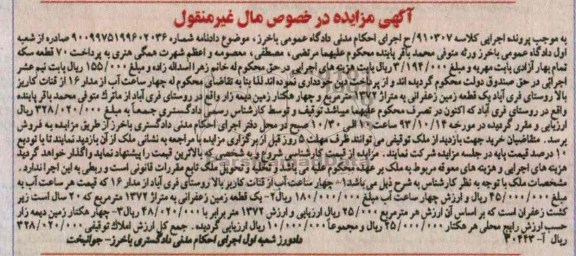 آگهی مزایده در خصوص مال غیرمنقول
به موجب پرونده اجرایی کلاسه ۹۱۰۳۰۷/ج اجرای احکام مدنی دادگاه عمومی باخرز، موضوع دادنامه شماره ۹۰۰۹۹۷۵۱۹۹۶۰۲۰۳۶ صادره از شعبه
اول دادگاه عمومی باخرز ورثه متوفی محمد باقر پاینده محکوم علیهما مرتضی، مصطفی، معصومه و اعظم شهرت همگی هنری به پرداخت ۷۰ قطعه سکه
تمام بهار آزادی بابت مهریه و مبلغ ۳/۱۹۴/۰۰۰ ریال بابت هزینه های اجرایی در حق محکوم له خانم زهرا اسداله زاده و مبلغ ۱۵۵/۰۰۰ ریال بابت نیم عشر
اجرائی در حق صندوق دولت محکوم گردیده اند و از پرداخت دین خودداری نموده اند لذا بنا به تقاضای محکوم له چهار ساعت آب از مدار ۱۶ از قنات کاریز
بالا روستای فری آباد یک قطعه زمین زعفرانی به متراژ ۱۳۷۲ مترمربع و چهار هکتار زمین دیمه زار واقع در روستای فری آباد از ماترک متوفی محمد باقر پاینده
واقع در روستای فری آباد که اکنون در تصرف محکوم علیهما میباشد توقیف و توسط کارشناس رسمی دادگستری جمعاً به مبلغ ۳۲۸/۰۲۰/۰۰۰ ریال
ارزیابی و مقرر گردیده در مورخه ۹۳/۱۰/۱۴ ساعت الی ۱۰/۳۰ صبح در محل دفتر اجرای احکام مدنی دادگستری باخرز از طریق مزایده به فروش
برسد. متقاضیان خرید جهت بازدید از ملک توقیفی می توانند ظرف مهلت ۵ روز قبل از برگزاری مزایده با مراجعه به نشانی ملک از آن بازدید نمایند تا با تودیع
۱۰ درصد قیمت پایه در جلسه مزایده شرکت نمایند. مزایده از قیمت کارشناسی شروع و به شخصی که بالاترین قیمت را پیشنهاد نماید واگذار خواهد گردید
هزینه های اجرایی و هزینه های معوقه مربوط به ملک بر عهده محکوم علیه می باشد و تخلیه و تحویل ملک تابع مقررات قانونی است و ربطی به این اجرا ندارد.
مشخصات ملک با توجه به نظر کارشناس به شرح ذیل می باشد: ۱- چهار ساعت آب از قنات کاریز بالا روستای فری آباد از مدار ۱۶ که قیمت هر ساعت آب به
مبلغ ۴۵/۰۰۰/۰۰۰ ریال و ارزش چهار ساعت آب مبلغ ۱۸۰/۰۰۰/۰۰۰ ریال ۲- یک قطعه زمین زعفرانی به متراژ ۱۳۷۲ مترمربع که ۲۰ سال است زیر
کشت زعفران است که بر اساس آن ارزش هر مترمربع ۲۵/۰۰۰ ریال ارزیابی و ارزش ۱۳۷۲ متر برابر با ۴۸/۰۲۰/۰۰۰ ریال ۳- چهار هکتار زمین دیمه زار
حسب ارزش رایج محلی هر هکتار ۲۵/۰۰۰/۰۰۰ ریال و مجموعاً ۱۰۰/۰۰۰/۰۰۰ ریال ارزیابی گردید. جمع کل ارزش املاک توقیفی ۳۲۸/۰۲۰/۰۰۰
ریال آ-۳۰۴۲۳ دادورز شعبه اول اجرای احکام مدنی دادگستری باخرز- جوانبخت